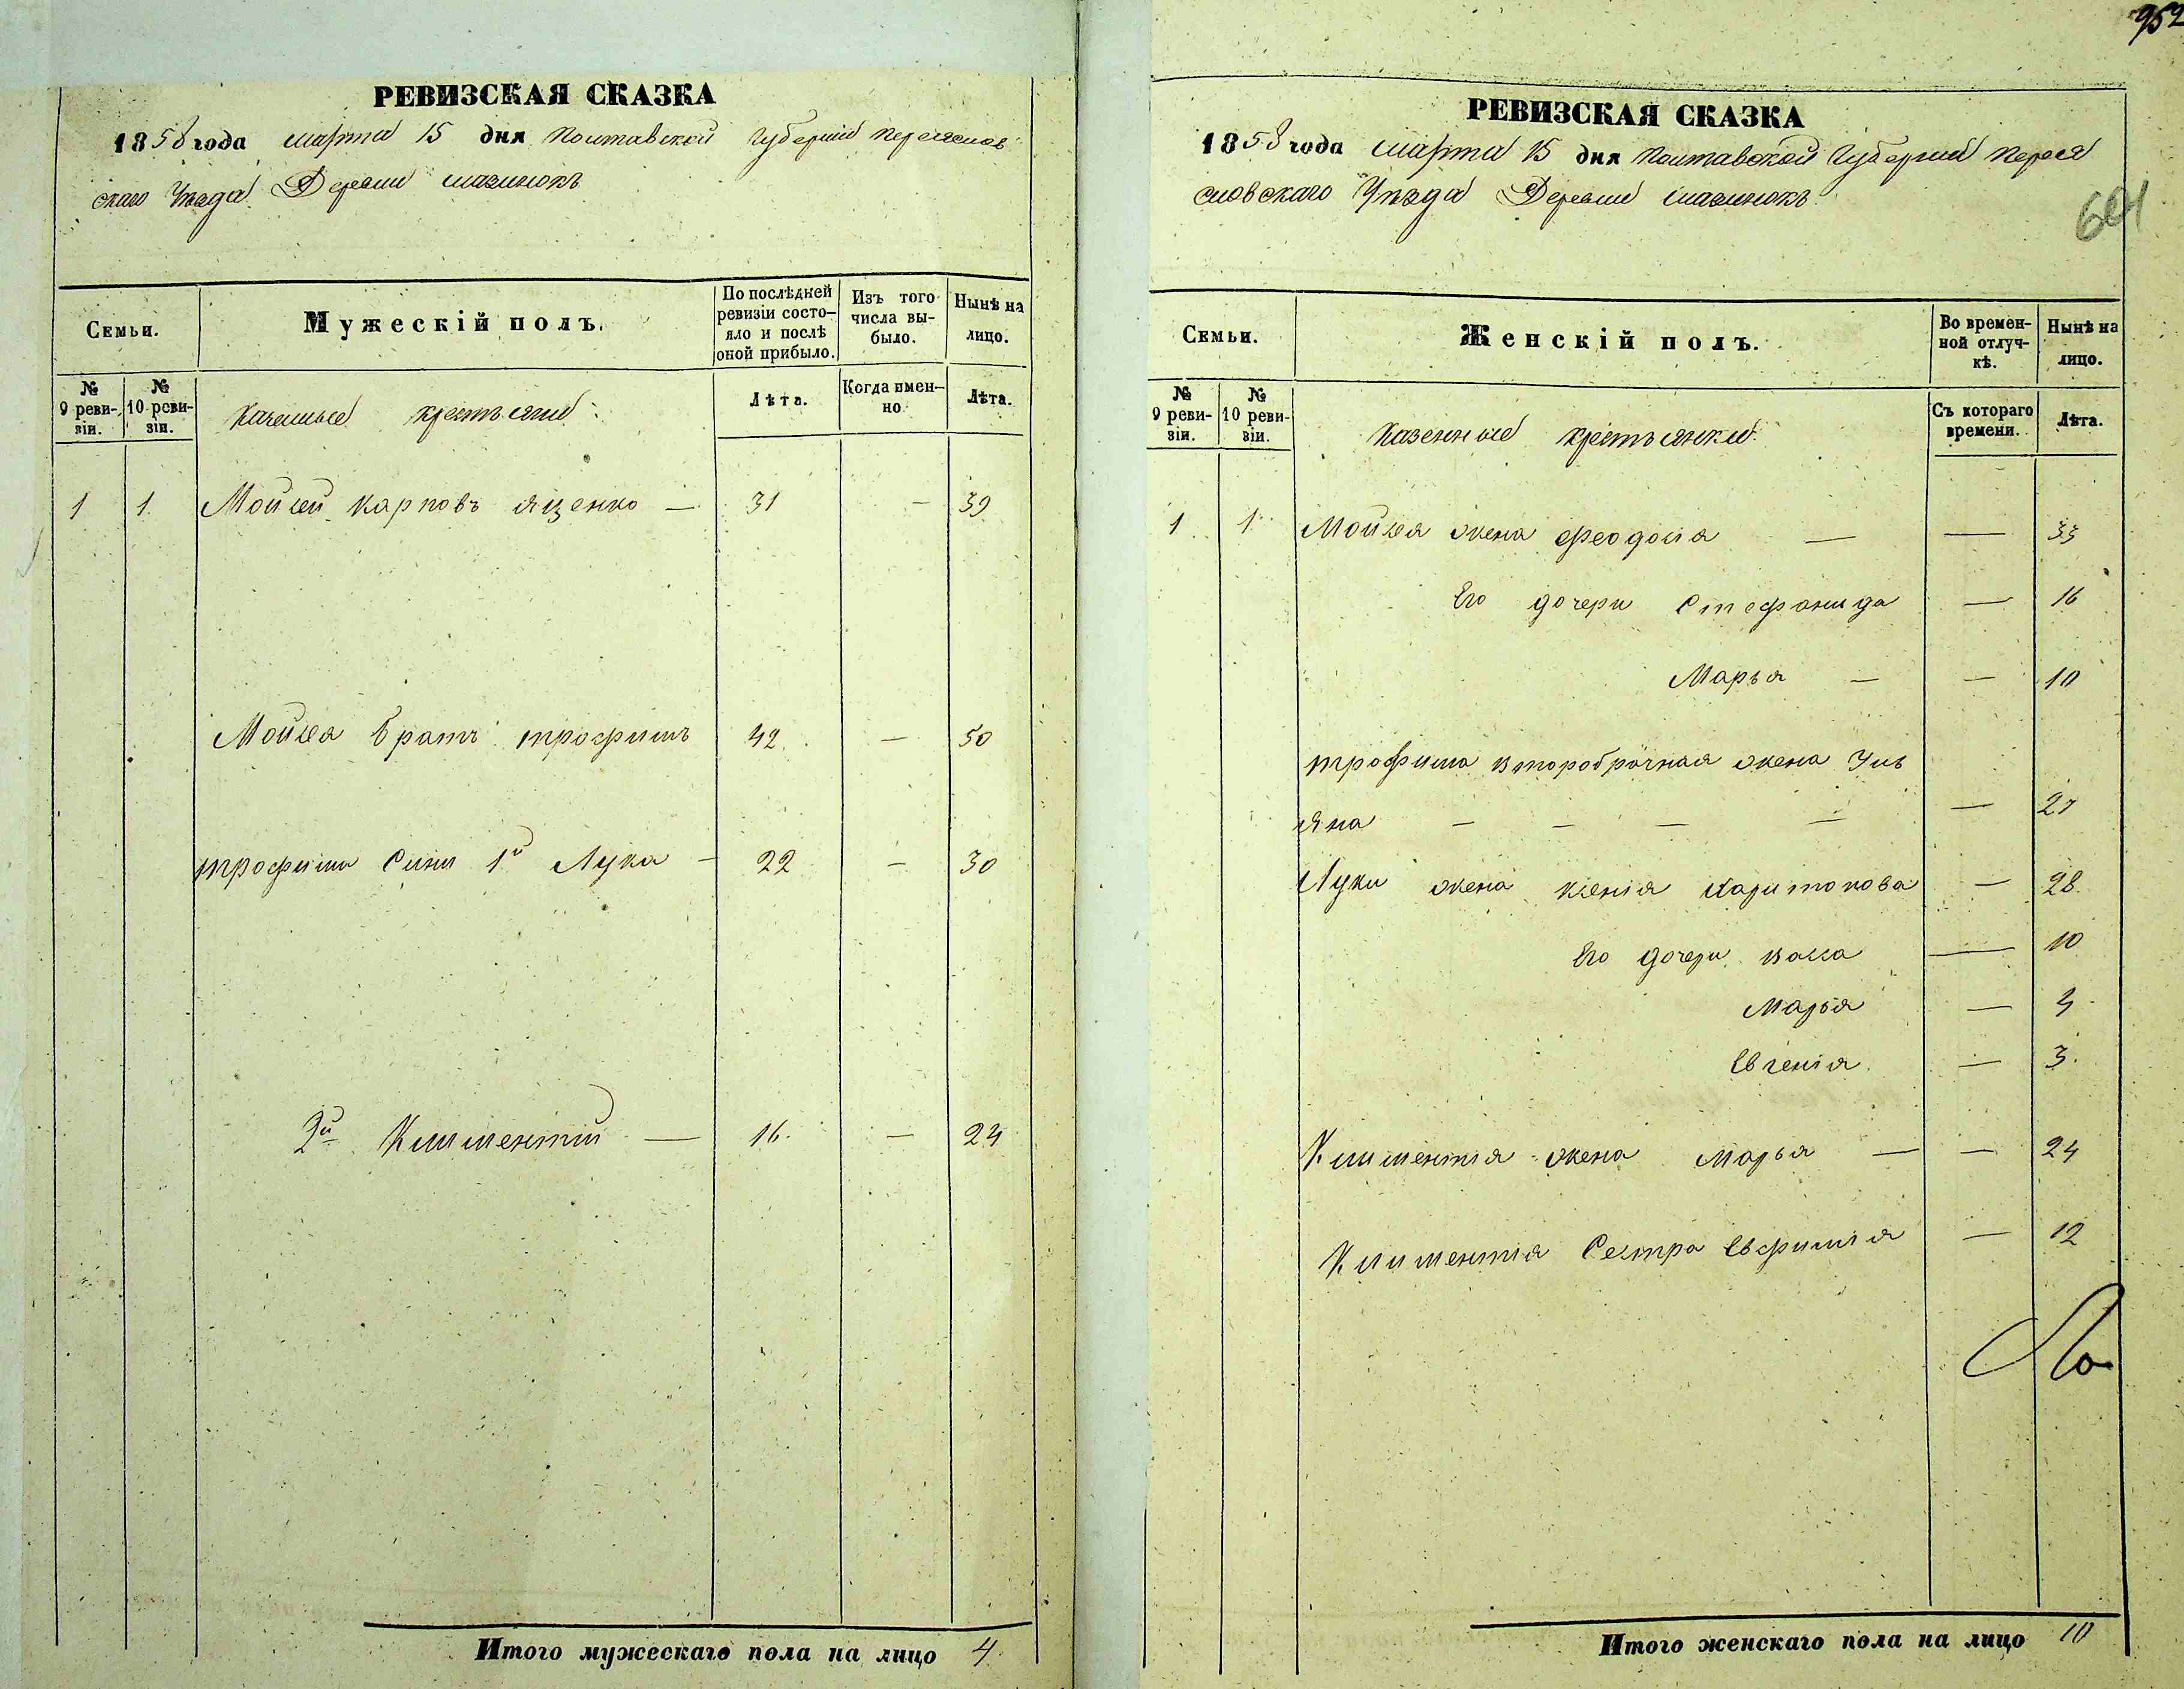 952
РЕВИЗСКАЯ СКАЗКА
1858 года марта 15 дня Полтавской Губерніи Переяслов
скаго Уѣзда Деревни Мазинокъ
Семьи.
Мужескій полъ.
По послѣдней ревизіи состо-
яло и послѣ
оной прибыло.
Изъ того
числа вы-
было.
Нынѣ на
лицо.
№
9 реви-
зіи.
№
10 реви-
зіи.
Казенные крестьяне
Лѣта.
Когда имен-
но.
Лѣта.
1 1. Мойсей Карповъ Яценко — 31 — 39
Мойсея братъ трофимъ 42. — 50
трофима Сини 1й Лука — 22 — 30
2й Климентій — 16. — 24
Итого мужескаго пола на лицо 4.
РЕВИЗСКАЯ СКАЗКА
1858 года марта 15 дня Полтавской Губерніи Перея
словскаго Уѣзда Деревни Мазинокъ
601
Семьи.
Женскій полъ.
Во времен-
ной отлуч-
кѣ.
Нынѣ на
лицо.
№
9 реви-
зіи.
№
10 реви-
зіи.
Казенные крестьянки
Съ котораго
времени.
Лѣта.
1 1. Мойсея жена Феодосія — — 33
Его дочери Стефанида — 16
Марья — — 10
трофима второбрачная жена Уль
яна — — — — — 27
Луки жена Ксенія Харитонова — 28.
Его дочери Васса — 10
Марья — 4
Евгенія. — 3.
Климентія жена Марья — — 24
Климентія Сестра Евфимія — 12
Итого женскаго пола на лицо 10